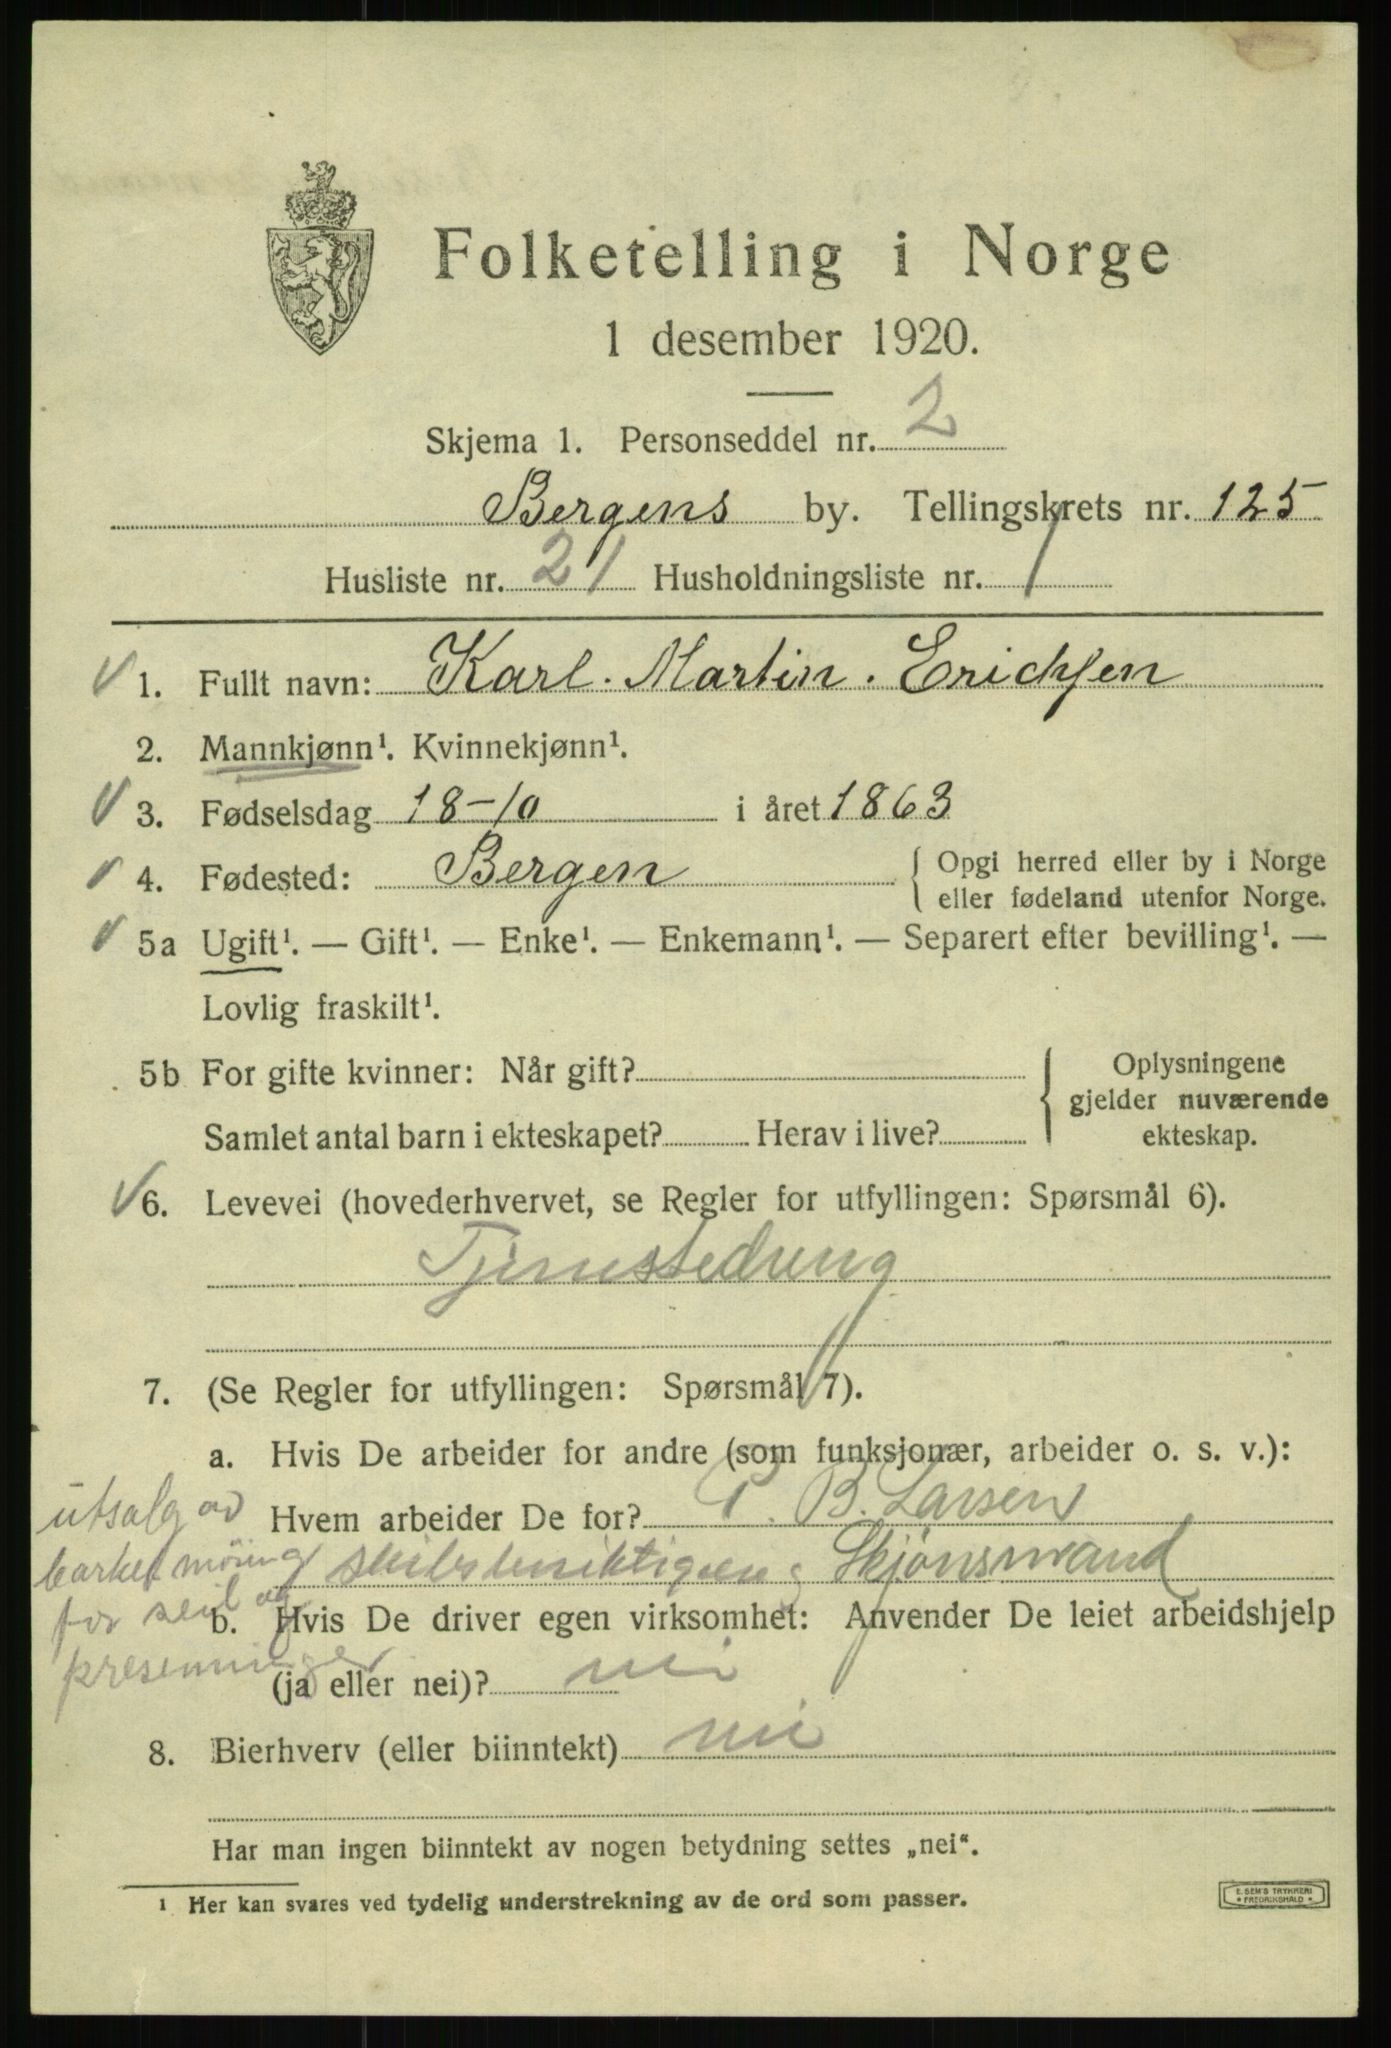 Folketelling i Norge
1 desember 1920.
Skjema 1. Personseddel nr. 2
Bergens by. Tellingskrets nr. 125
Husliste nr. 21 Husholdningsliste nr. 1
1. Fullt navn: Karl. Martin. Erichsen
2. Mannkjønn¹. Kvinnekjønn¹.
3. Fødselsdag 18-10 i året 1863
4. Fødested: Bergen { Opgi herred eller by i Norge
eller fødeland utenfor Norge.
5a Ugift¹. — Gift¹. — Enke¹. — Enkemann¹. — Separert efter bevilling¹. —
Lovlig fraskilt¹.
5b For gifte kvinner: Når gift? { Oplysningene
gjelder nuværende
Samlet antal barn i ekteskapet? Herav i live? ekteskap.
6. Levevei (hovederhvervet, se Regler for utfyllingen: Spørsmål 6).
Tjenestedreng
7. (Se Regler for utfyllingen: Spørsmål 7).
a. Hvis De arbeider for andre (som funksjonær, arbeider o. s. v.):
utsalg av
Hvem arbeider De for? P. B. Larsen
skibsbesiktigelse og Skjønsmand
for seil og
b. Hvis De driver egen virksomhet: Anvender De leiet arbeidshjelp
presenninger
(ja eller nei)? nei
8. Bierhverv (eller biinntekt) nei
Har man ingen biinntekt av nogen betydning settes „nei“.
1 Her kan svares ved tydelig understrekning av de ord som passer.
E. SEM'S TRYKKERI
FREDRIKSHALD